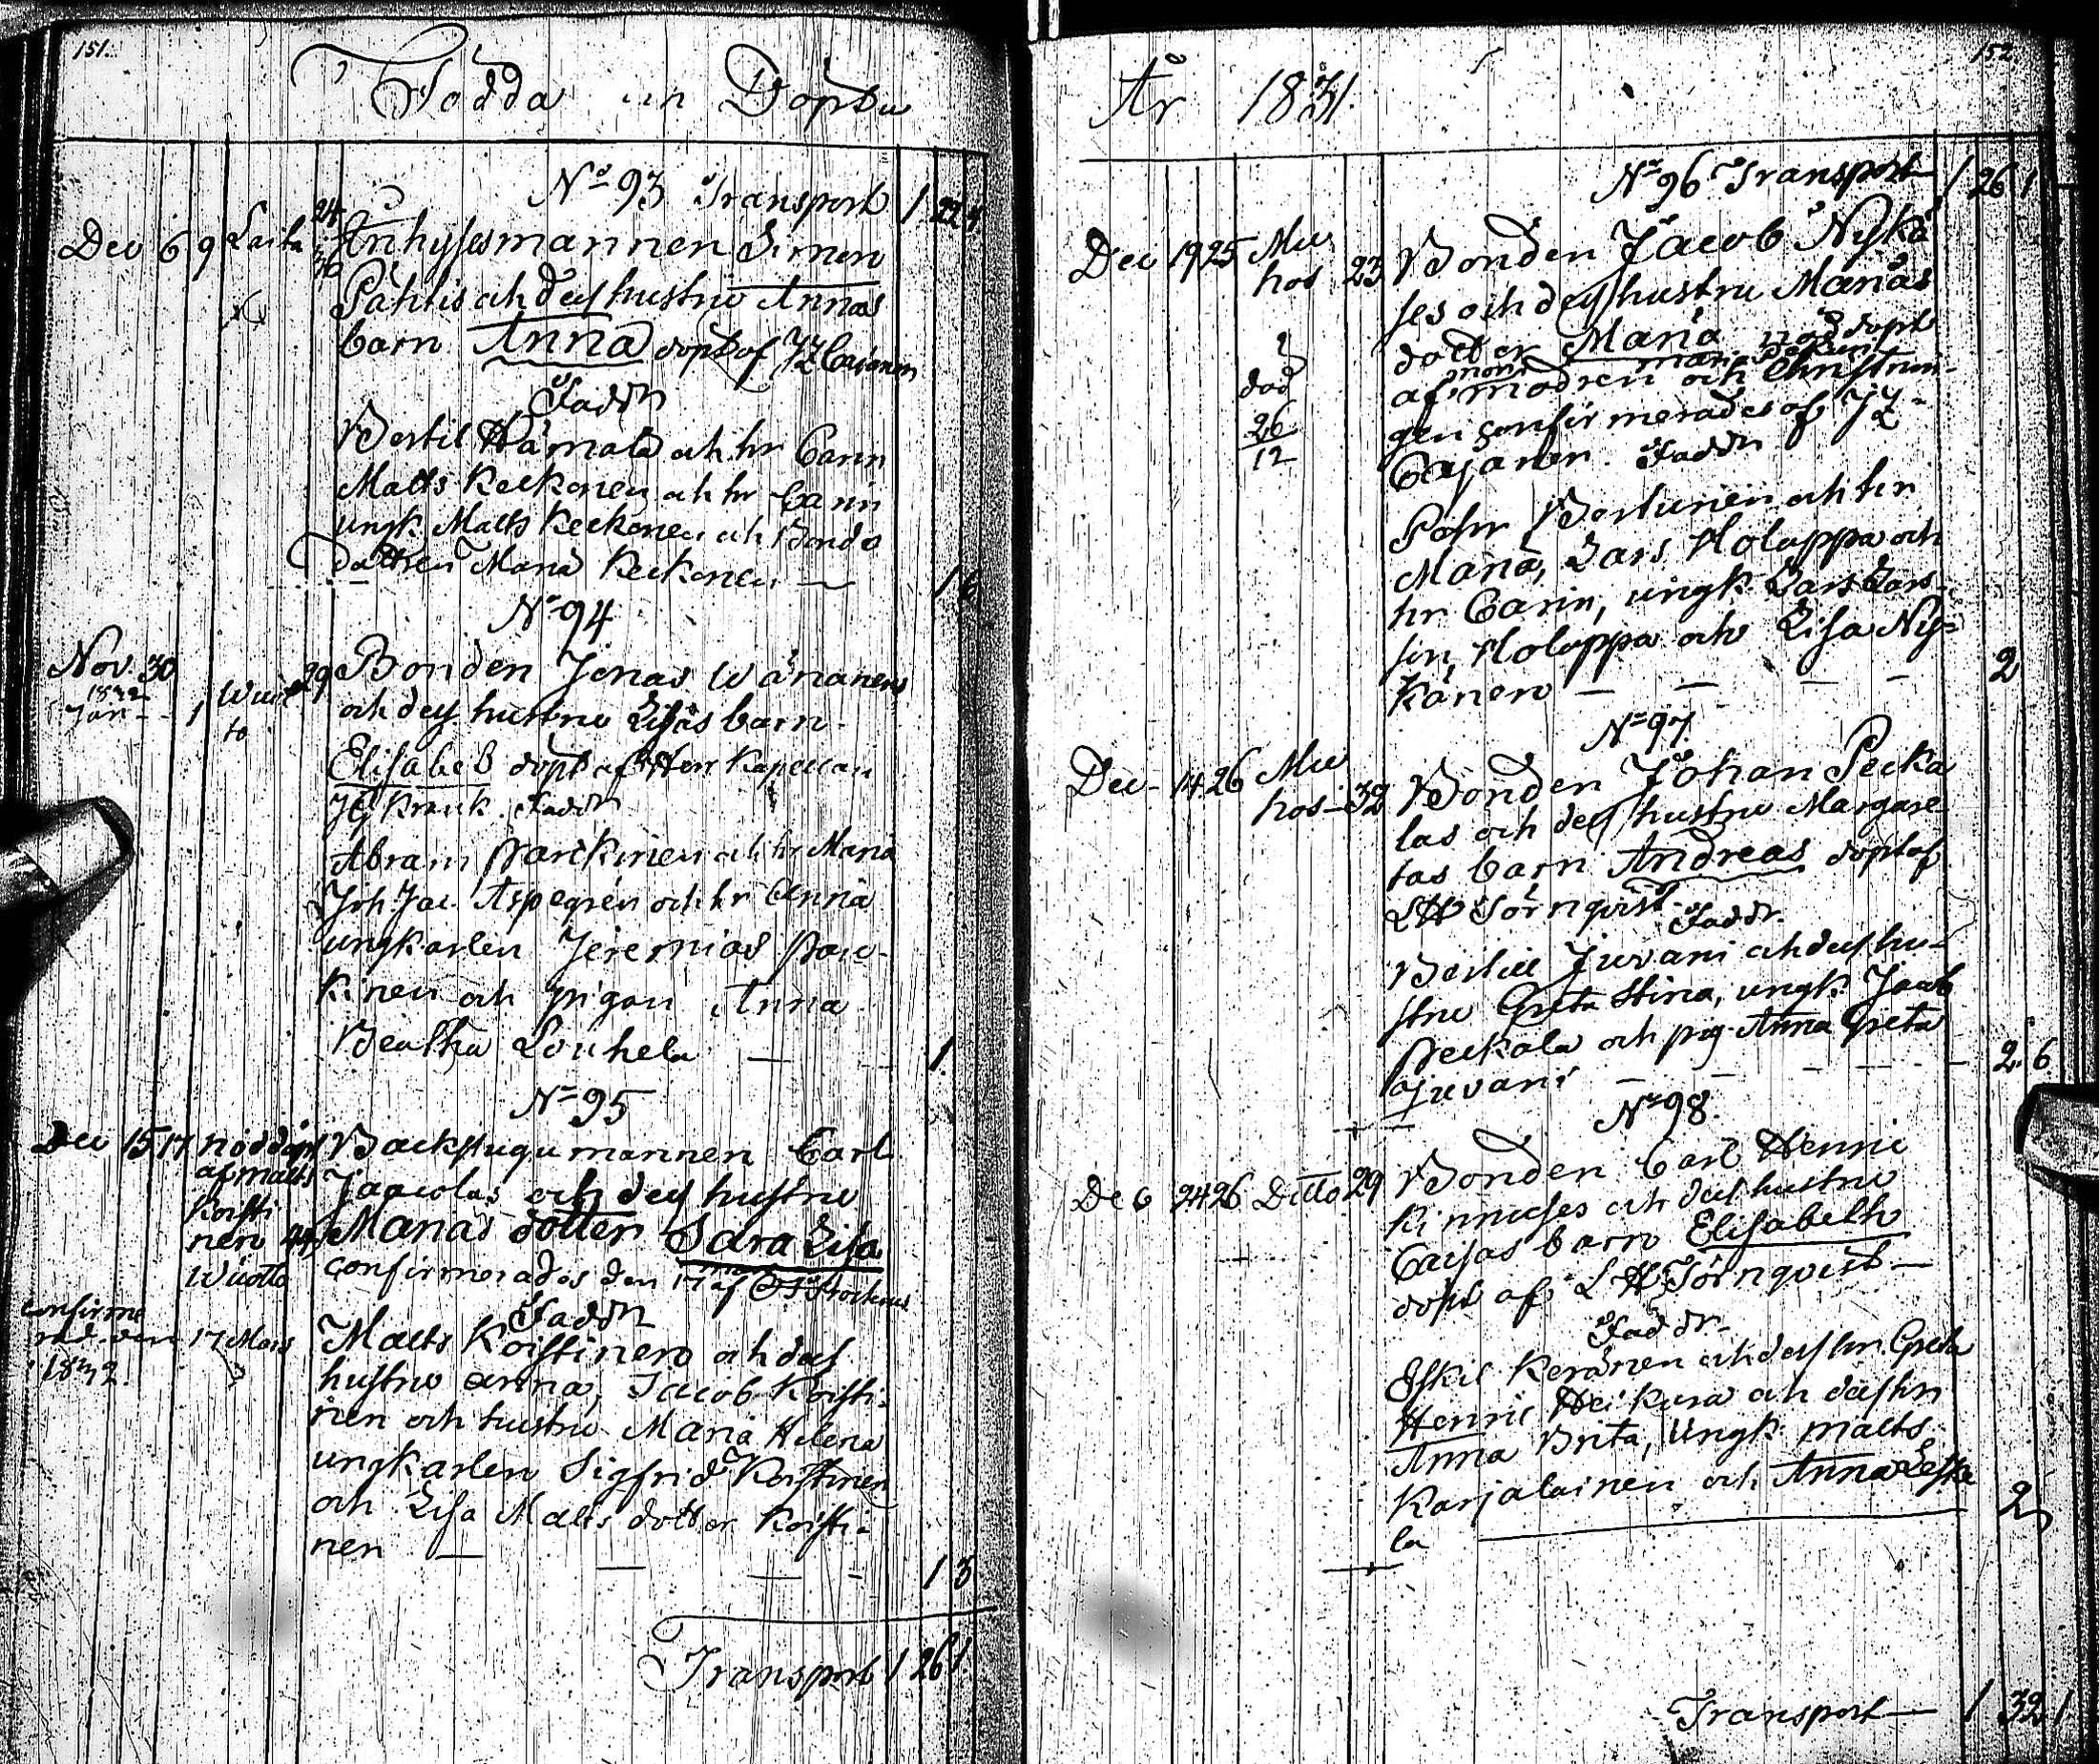 151.
Födda och Döpta
N:o 93 Transport 1 22 4
Dec 6 9 Laita 24 Inhysesmannen Simon
36 Pähtis och desshustru Annas
barn Anna döpt af JZ Cajanen
Faddr
Bertil Hämälä och hr Carin
Matts Keckonen och hr Carin
ungk. Matts Keckonen och Bonde
dottren Maria Keckonen
1 6
N:o 94
Nov. 30 29 Bonden Jonas Wänänens
1832 Jan 1 Wuok
to och dess hustru Lisas barn
Elisabet döpt af Herr Kapellan
JG Krank. Faddr
Abram Parckinen och hr Maria
Joh. Jac. Aspegrén och hr Anna
ungkarlen Jeremias Par-
kinen och pigan Anna
Beatha Louhela — 1
N:o 95
Dec 15 17 nöddöpt Backstugumannen Carl
af Matts Jaacolas och dess hustru
Koisti
nen 44 Marias dotter Sara Lisa
Wuotto confirmerades den 17 mars af
Faddr
confirme
rad den 17 Mars Matts Koistinen och dess
1832. hustru Anna, Jacob Koisti-
nen och hustru Maria Helena
ungkarlen Sigfrid Koistinen
och Lisa Mattsdotter Koisti-
nen — — — -
1 3
Transport 1 26 1
152
År 1831.
N:o 96 Transport 1 26 1
Dec 19 25 Mu
hos 23 Bonden Jacob Nykä
ses och dess hustru Marias
dotter Maria nöddöpt
död af mormodren och Christnin-
26
12 gen confirmerades af JZ
Cajanen. Faddr
Pehr Bertunen och hr
Maria, Lars Holappa och
hr Carin, ungk. Lars Lars
son Holappa och Lisa Ny-
känen — — — -
2
N:o 97
Dec 14 26 Mu
hos 32 Bonden Johan Pecka
las och dess hustru Margare
tas barn Andreas döpt af
LH Törnqvist.
Faddr.
Bertill Juvani och dess hu-
stru Greta Stina, ungk. Jacob
Peckala och pig. Anna Greta
Juvani — — — — 2 6
N:o 98.
Dec 24 26 Ditto 29 Bonden Carl Henric
Kinnuses och dess hustru
Caisas barn Elisabeth
döpt af LH Törnqvist —
Faddr.
Eskil Keränen och dess hr. Greta
Henric Heikura och dess hr
Anna Brita, Ungk. Matts
Karjalainen och Anna Leske
la
2
Transport — 1 32 1